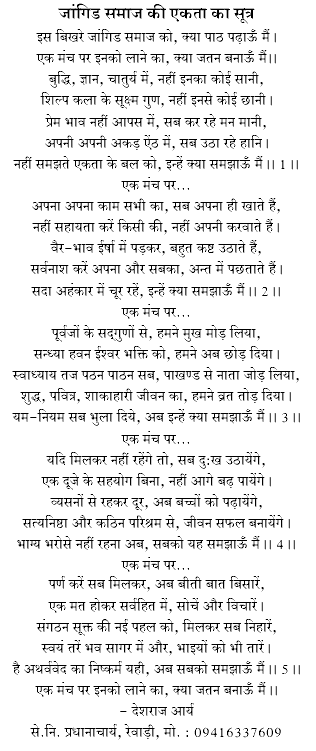 जांगिड समाज की एकता का सूत्र
इस बिखरे जांगिड समाज को, क्या पाठ पढ़ाऊँ मैं।
एक मंच पर इनको लाने का, क्या जतन बनाऊँ मैं।।
बुद्धि, ज्ञान, चातुर्य में, नहीं इनका कोई सानी,
शिल्प कला के सूक्ष्म गुण, नहीं इनसे कोई छानी।
प्रेम भाव नहीं आपस में, सब कर रहे मन मानी,
अपनी अपनी अकड़ ऐंठ में, सब उठा रहे हानि।
नहीं समझते एकता के बल को, इन्हें क्या समझाऊँ मैं।। 1 ।।
एक मंच पर...
अपना अपना काम सभी का, सब अपना ही खाते हैं,
नहीं सहायता करें किसी की, नहीं अपनी करवाते हैं।
वैर-भाव ईर्षा में पड़कर, बहुत कष्ट उठाते हैं,
सर्वनाश करें अपना और सबका, अन्त में पछताते हैं।
सदा अहंकार में चूर रहें, इन्हें क्या समझाऊँ मैं।। 2 ।।
एक मंच पर...
पूर्वजों के सद्गुणों से, हमने मुख मोड़ लिया,
सन्ध्या हवन ईश्वर भक्ति को, हमने अब छोड़ दिया।
स्वाध्याय तज पठन पाठन सब, पाखण्ड से नाता जोड़ लिया,
शुद्ध, पवित्र, शाकाहारी जीवन का, हमने व्रत तोड़ दिया।
यम-नियम सब भुला दिये, अब इन्हें क्या समझाऊँ मैं।। 3 ।।
एक मंच पर...
यदि मिलकर नहीं रहेंगे तो, सब दु:ख उठायेंगे,
एक दूजे के सहयोग बिना, नहीं आगे बढ़ पायेंगे।
व्यसनों से रहकर दूर, अब बच्चों को पढ़ायेंगे,
सत्यनिष्ठा और कठिन परिश्रम से, जीवन सफल बनायेंगे।
भाग्य भरोसे नहीं रहना अब, सबको यह समझाऊँ मैं।। 4 ।।
एक मंच पर...
पर्ण करें सब मिलकर, अब बीती बात बिसारें,
एक मत होकर सर्वहित में, सोचें और विचारें।
संगठन सूक्त की नई पहल को, मिलकर सब निहारें,
स्वयं तरें भव सागर में और, भाइयों को भी तारें।
है अथर्ववेद का निष्कर्म यही, अब सबको समझाऊँ मैं।। 5 ।।
एक मंच पर इनको लाने का, क्या जतन बनाऊँ मैं।।
- देशराज आर्य
से.नि. प्रधानाचार्य, रेवाड़ी, मो. : 09416337609